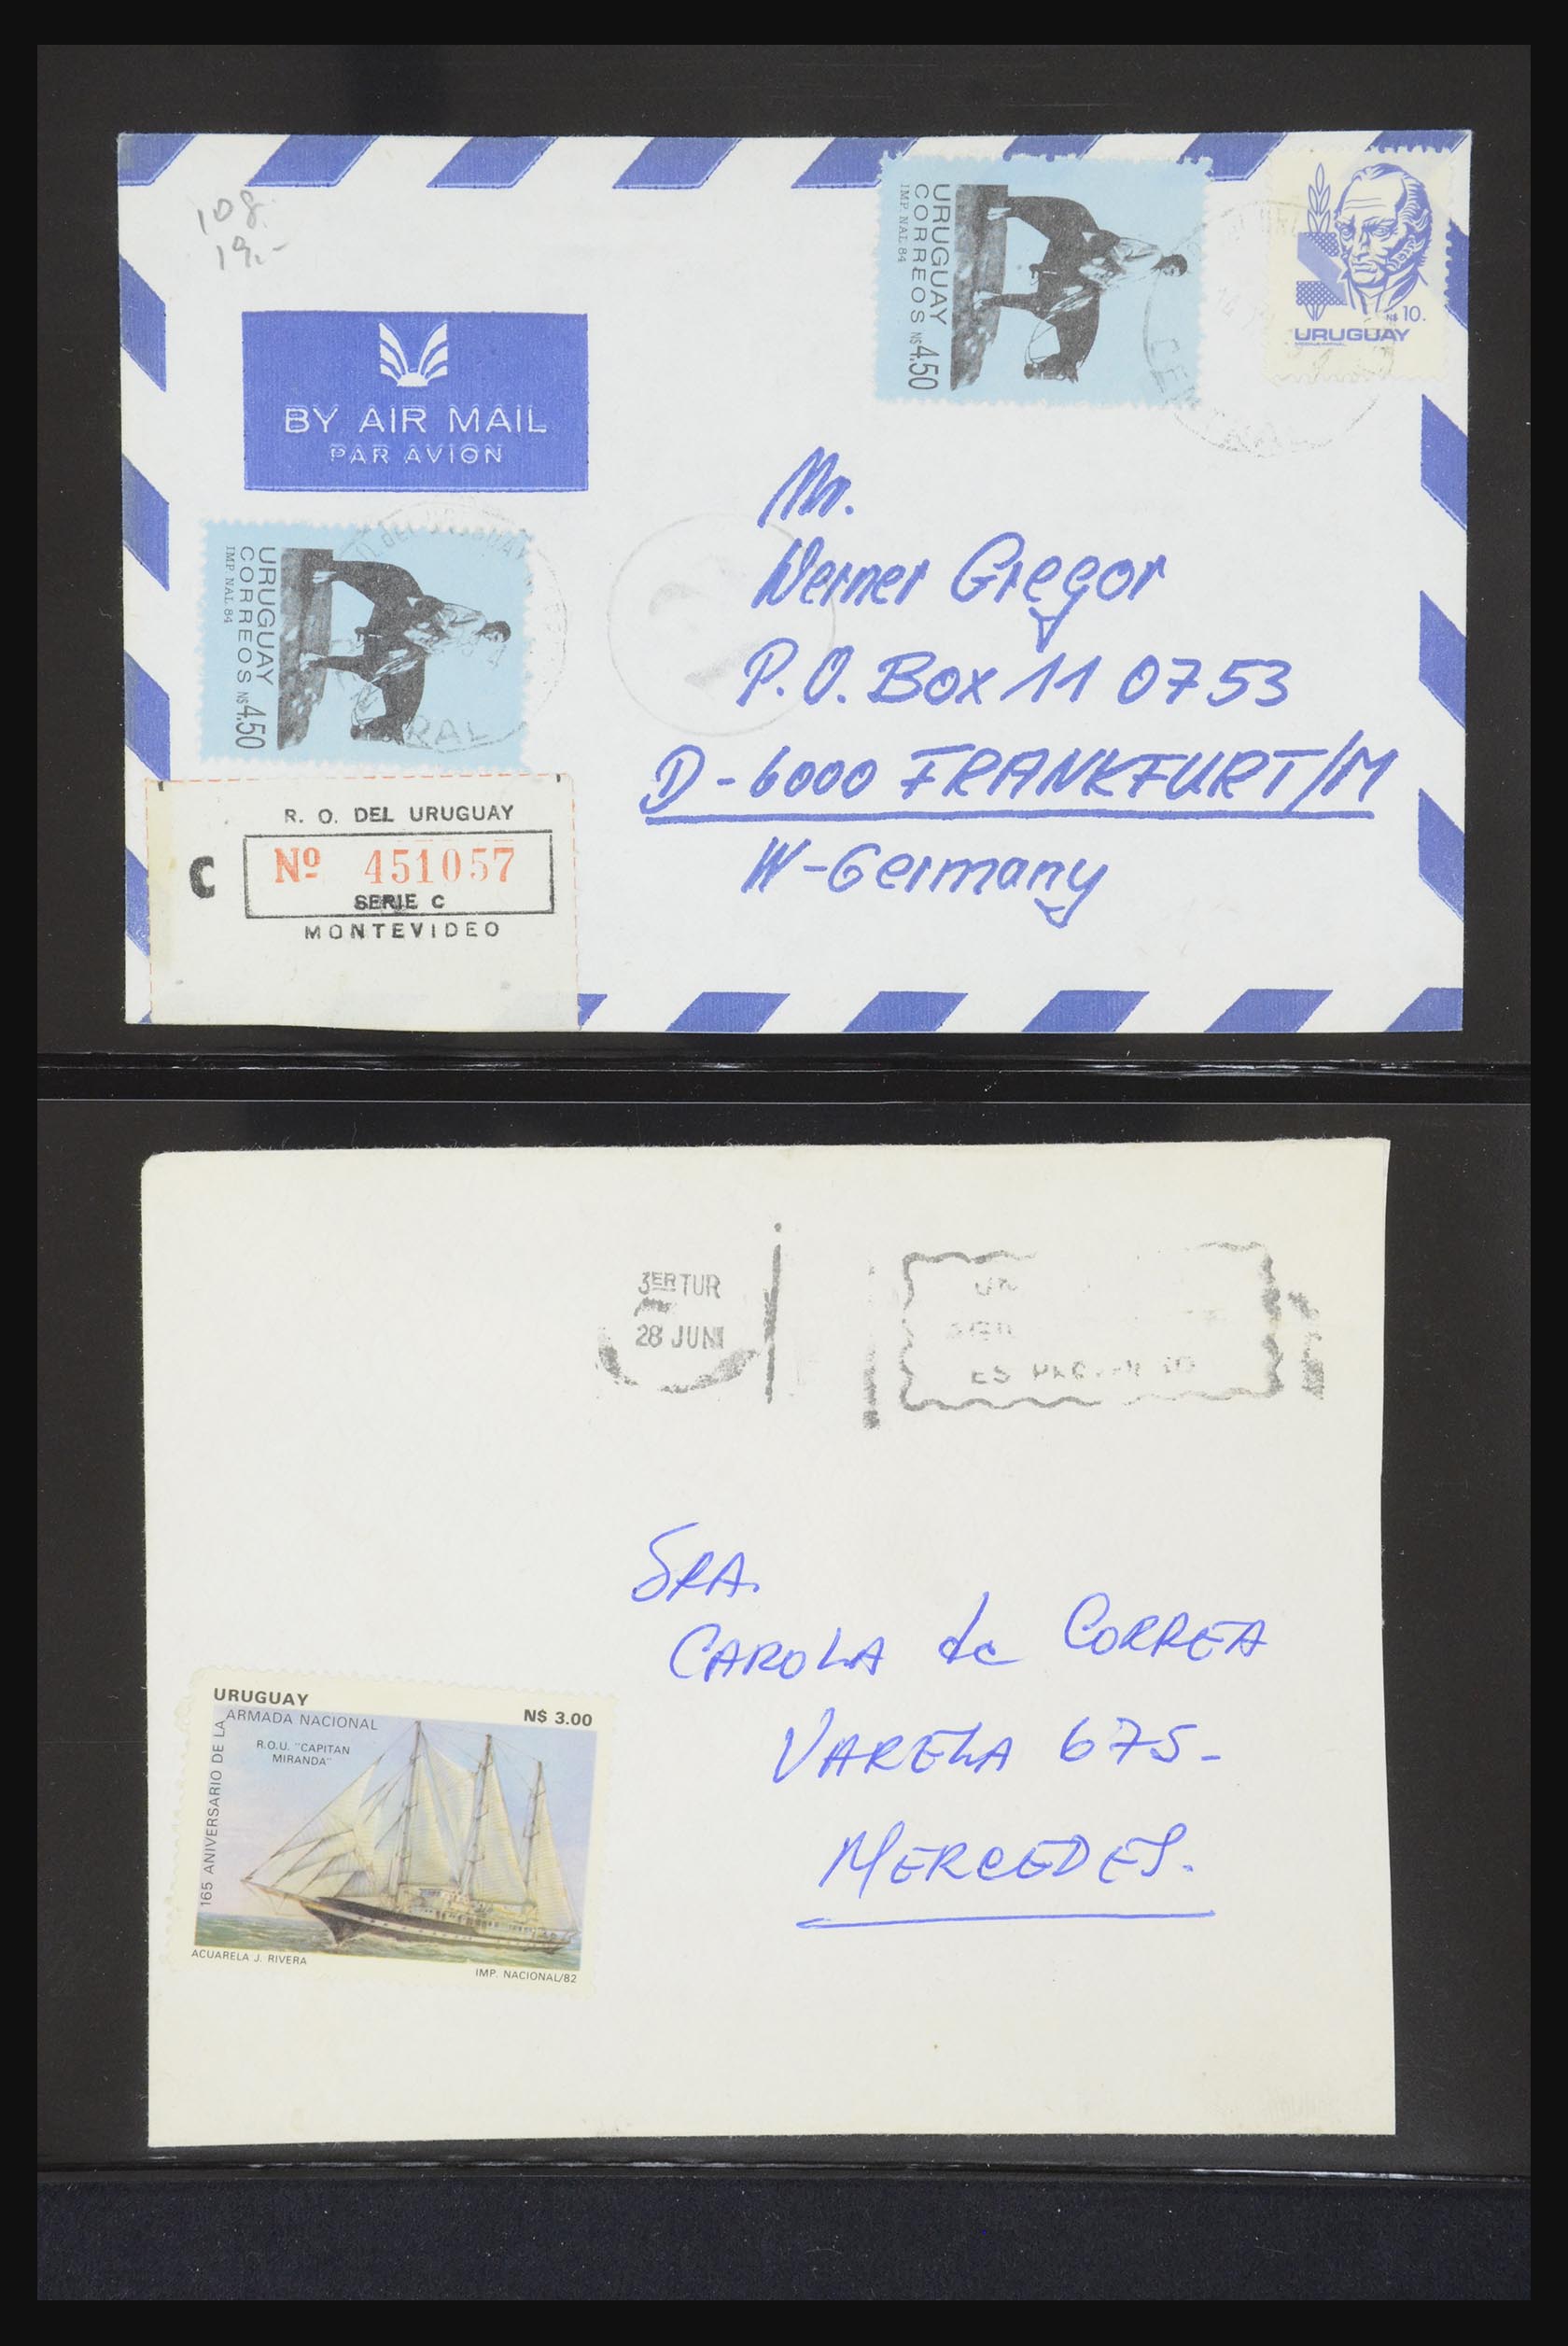 108.
19.-
BY AIR MAIL
PAR AVION
URUGUAY
CORREOS N$4.50
IMP. NAL. 84
N$ 10.
URUGUAY
CENTRAL
URUGUAY
CORREOS N$4.50
IMP. NAL. 84
Mr.
Werner Gregor
P.O. Box 11 0753
D-6000 FRANKFURT/M
W-Germany
R. O. DEL URUGUAY
C
Nº 451057
SERIE C
MONTEVIDEO
3ER TUR
28 JUN
UN
ES
SRA.
CAROLA de CORREA
VARELA 675-
MERCEDES.
URUGUAY
N$ 3.00
165 ANIVERSARIO DE LA ARMADA NACIONAL
R.O.U. "CAPITAN
MIRANDA"
ACUARELA J. RIVERA
IMP. NACIONAL/82